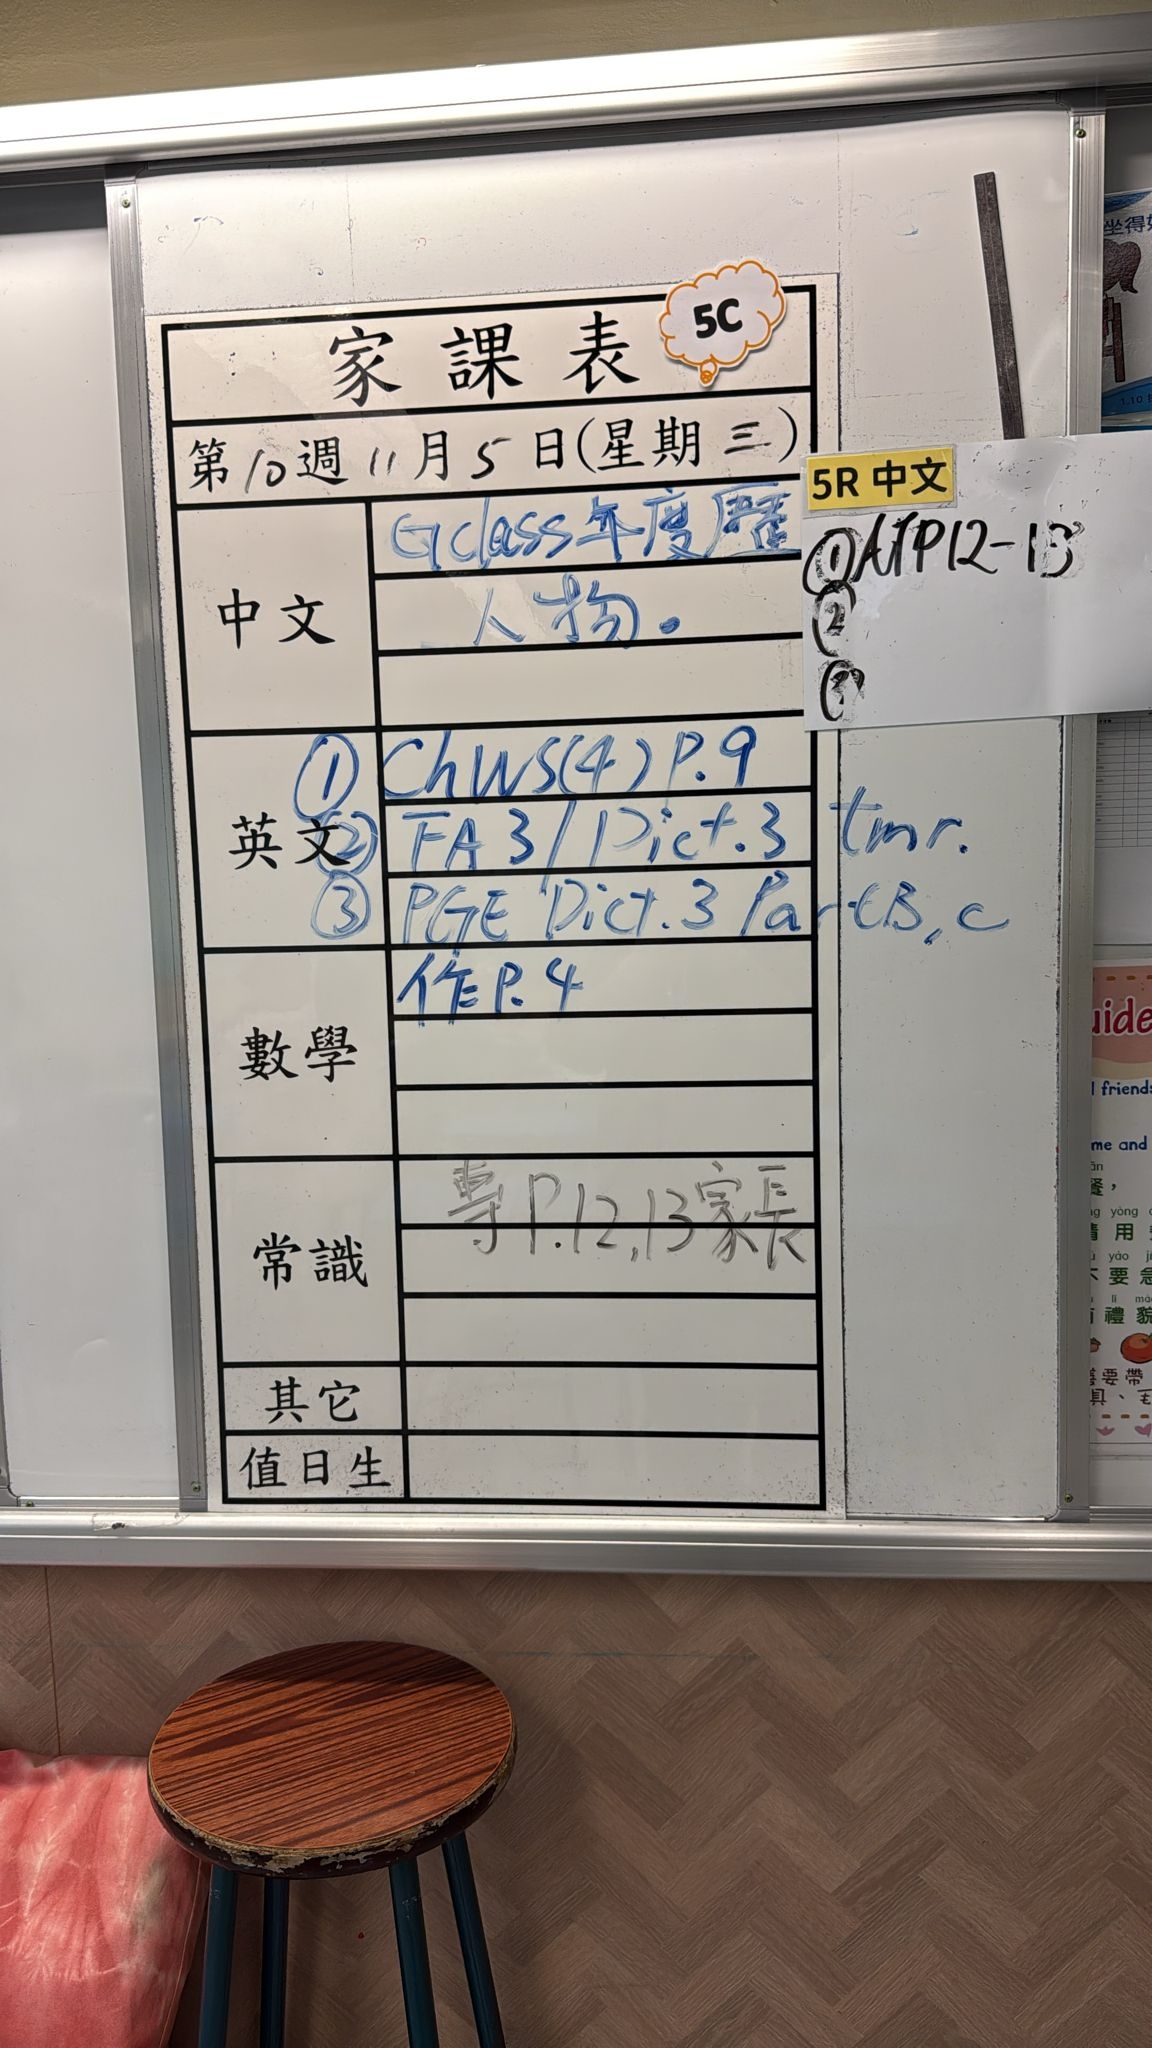 家課表
5C
第10週11月5日(星期三)
中文
Gclass年度歷
人物。
5R 中文
①
P12-13
②
③
英文
① Ch WS(4) P.9
② FA 3 / Dict.3 tmr.
③ PGE Dict.3 Part B, C
數學
作P.4
常識
專P.12,13家長
其它
值日生
坐得
1.10
uide
friends
me and
餐，
用
yào
不要急
lǐ
禮貌
要帶
具、毛